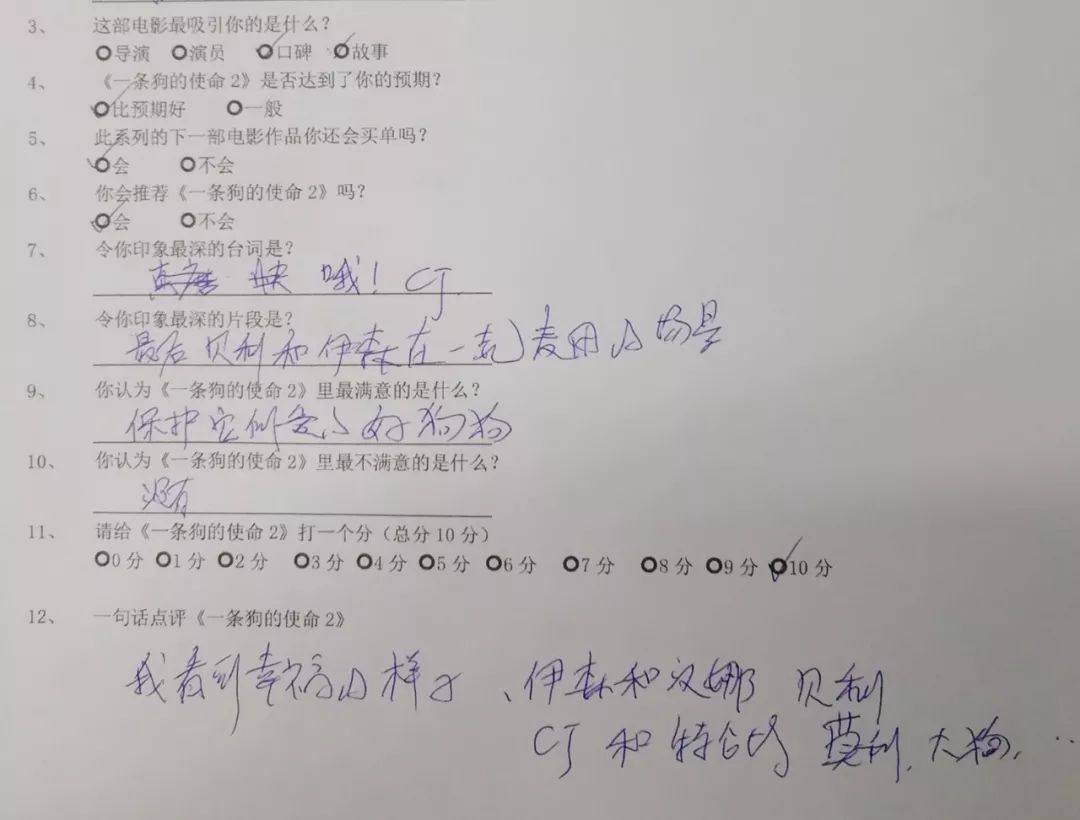 3、 这部电影最吸引你的是什么？
导演 演员 口碑 故事
4、 《一条狗的使命 2》是否达到了你的预期？
比预期好 一般
5、 此系列的下一部电影作品你还会买单吗？
会 不会
6、 你会推荐《一条狗的使命 2》吗？
会 不会
7、 令你印象最深的台词是？
快 哦！CJ
8、 令你印象最深的片段是？
最后贝利和伊森在一起麦田的场景
9、 你认为《一条狗的使命 2》里最满意的是什么？
保护 好狗狗
10、 你认为《一条狗的使命 2》里最不满意的是什么？
没有
11、 请给《一条狗的使命 2》打一个分（总分 10 分）
0 分 1 分 2 分 3 分 4 分 5 分 6 分 7 分 8 分 9 分 10 分
12、 一句话点评《一条狗的使命 2》
我看到幸福的样子、伊森和汉娜 贝利
CJ 和特 莫利，大狗，…